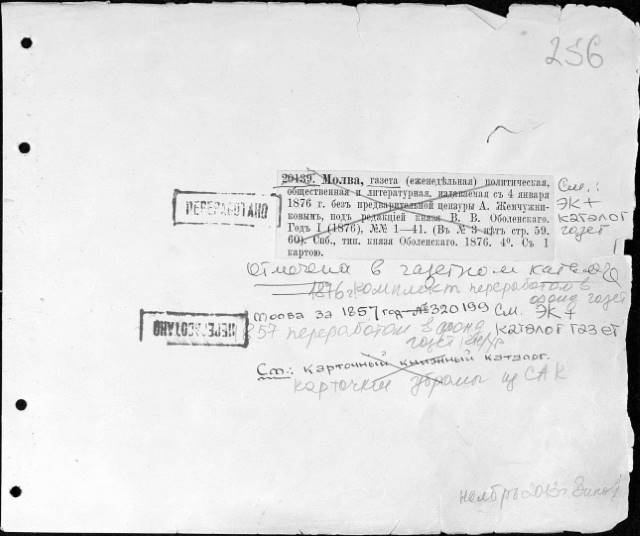 256
20439. Молва, газета (еженедѣльная) политическая,
общественная и литературная, издаваемая съ 4 января
1876 г. безъ предварительной цензуры А. Жемчужни-
ковымъ, подъ редакціей князя В. В. Оболенскаго.
Годъ I (1876), №№ 1—41. (Въ № 3 нѣтъ стр. 59,
60). Спб., тип. князя Оболенскаго. 1876. 4°. Съ 1
картою.
См.:
ЭК+
каталог
газет
ПЕРЕРАБОТАНО
Отмечена в газетном катал
1876 г комплект переработан в
фонд газет
за 1857 год №320199 См. ЭК+
каталог газет
ПЕРЕРАБОТАНО
857 переработан в фонд
газет
См.: карточный книжный каталог.
карточки убраны из САК
ноябрь 2013г